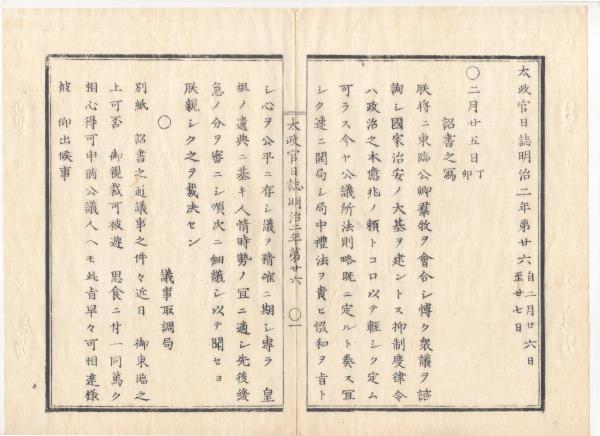 太政官日誌明治二年第廿六 自二月廿六日 至廿七日
〇二月廿五日 丁卯
詔書之寫
朕将ニ東臨公卿羣牧ヲ會合シ博ク衆議ヲ諮
詢シ國家治安ノ大基ヲ建ントス抑制度律令
ハ政治之本億兆ノ頼トコロ以テ輕シク定ム
可ラス今ヤ公議所法則略既ニ定ルト奏ス宜
シク速ニ開局シ局中禮法ヲ貴ヒ恊和ヲ旨ト
太政官日誌明治二年第廿六 〇一
シ心ヲ公平ニ存シ議ヲ精確ニ期シ専ラ 皇
祖ノ遺典ニ基キ人情時勢ノ冝ニ適シ先後緩
急ノ分ヲ審ニシ順次ニ細議シ以テ聞セヨ
朕親シク之ヲ裁決セン
〇 議事取調局
別紙 詔書之通議事之件々近日 御東臨之
上可否 御親裁可被遊 思食ニ付一同篤ク
相心得可申猶公議人ヘモ此旨早々可相達様
被 仰出候事